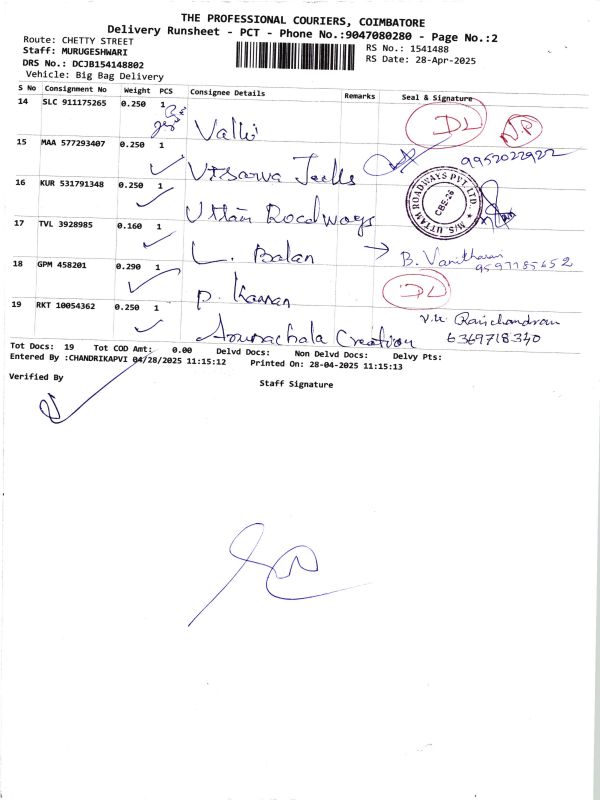 THE PROFESSIONAL COURIERS, COIMBATORE
Delivery Runsheet - PCT - Phone No.:9047080280 - Page No.:2
Route: CHETTY STREET
RS No.: 1541488
Staff: MURUGESHWARI
RS Date: 28-Apr-2025
DRS No.: DCJB154148802
Vehicle: Big Bag Delivery
S No Consignment No Weight PCS Consignee Details Remarks Seal & Signature
14 SLC 911175265 0.250 1 Valli DL
15 MAA 577293407 0.250 1 9952022922
16 KUR 531791348 0.250 1 Uttam Roadways M/S. UTTAM ROADWAYS PVT. LTD. CBE-26
17 TVL 3928985 0.160 1 L. Balan → B. Vanitharan
9597785652
18 GPM 458201 0.290 1 P. Kannan DL
19 RKT 10054362 0.250 1 Arunachala Creation
6369718340
Tot Docs: 19 Tot COD Amt: 0.00 Delvd Docs: Non Delvd Docs: Delvy Pts:
Entered By :CHANDRIKAPVI 04/28/2025 11:15:12 Printed On: 28-04-2025 11:15:13
Verified By Staff Signature